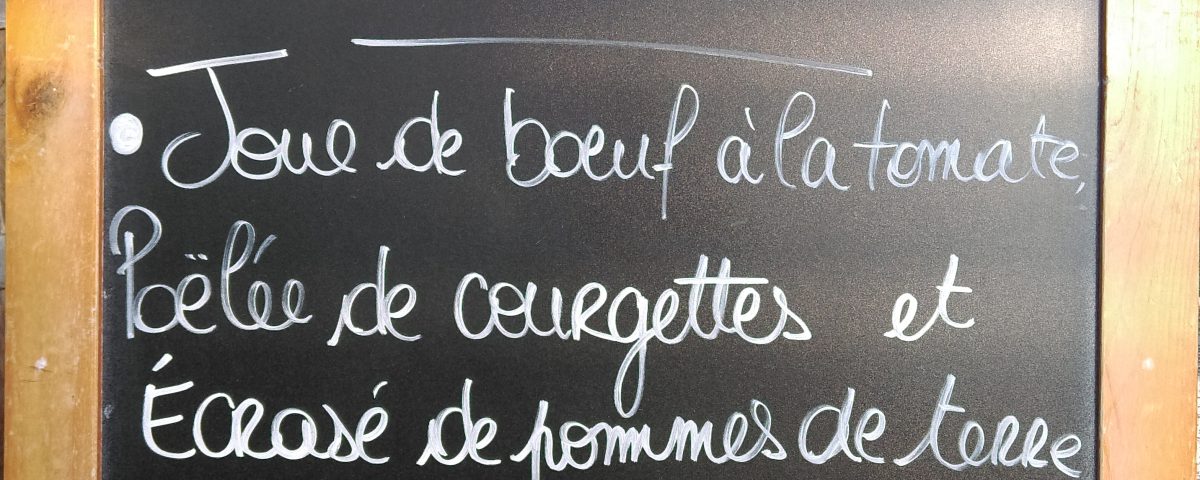 Joue de bœuf à la tomate,
Poëlée de courgettes et
Écrasé de pommes de terre